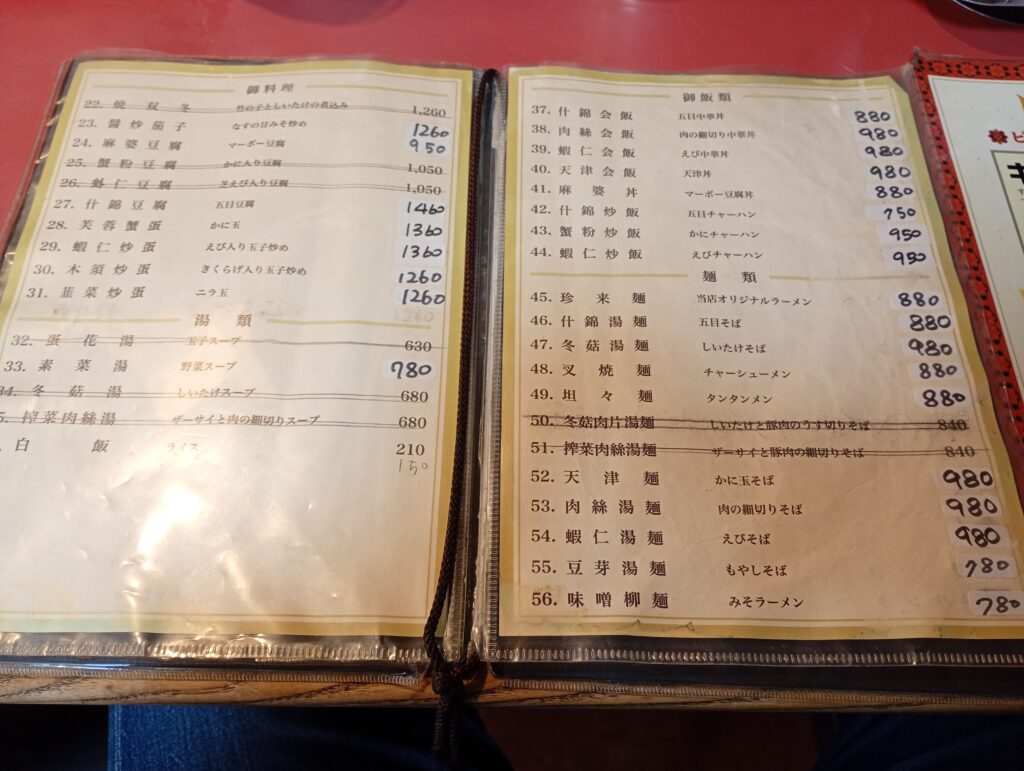 御料理
22. 焼双冬 竹の子としいたけの煮込み 1,260
23. 醤炒茄子 なすの甘みそ炒め 1260
24. 麻婆豆腐 マーボー豆腐 950
25. 蟹粉豆腐 かに入り豆腐 1,050
26. 蝦仁豆腐 芝えび入り豆腐 1,050
27. 什錦豆腐 五目豆腐 1460
28. 芙蓉蟹蛋 かに玉 1360
29. 蝦仁炒蛋 えび入り玉子炒め 1360
30. 木須炒蛋 きくらげ入り玉子炒め 1260
31. 韮菜炒蛋 ニラ玉 1260
湯類
32. 蛋花湯 玉子スープ 630
33. 素菜湯 野菜スープ 780
34. 冬菇湯 しいたけスープ 680
5. 搾菜肉絲湯 ザーサイと肉の細切りスープ 680
. 白飯 ライス 210
150
御飯類
37. 什錦会飯 五目中華丼 880
38. 肉絲会飯 肉の細切り中華丼 980
39. 蝦仁会飯 えび中華丼 980
40. 天津会飯 天津丼 980
41. 麻婆丼 マーボー豆腐丼 880
42. 什錦炒飯 五目チャーハン 750
43. 蟹粉炒飯 かにチャーハン 950
44. 蝦仁炒飯 えびチャーハン 950
麺類
45. 珍来麺 当店オリジナルラーメン 880
46. 什錦湯麺 五目そば 880
47. 冬菇湯麺 しいたけそば 980
48. 叉焼麺 チャーシューメン 880
49. 坦々麺 タンタンメン 880
50. 冬菇肉片湯麺 しいたけと豚肉のうす切りそば 840
51. 搾菜肉絲湯麺 ザーサイと豚肉の細切りそば 840
52. 天津麺 かに玉そば 980
53. 肉絲湯麺 肉の細切りそば 980
54. 蝦仁湯麺 えびそば 980
55. 豆芽湯麺 もやしそば 780
56. 味噌柳麺 みそラーメン 780